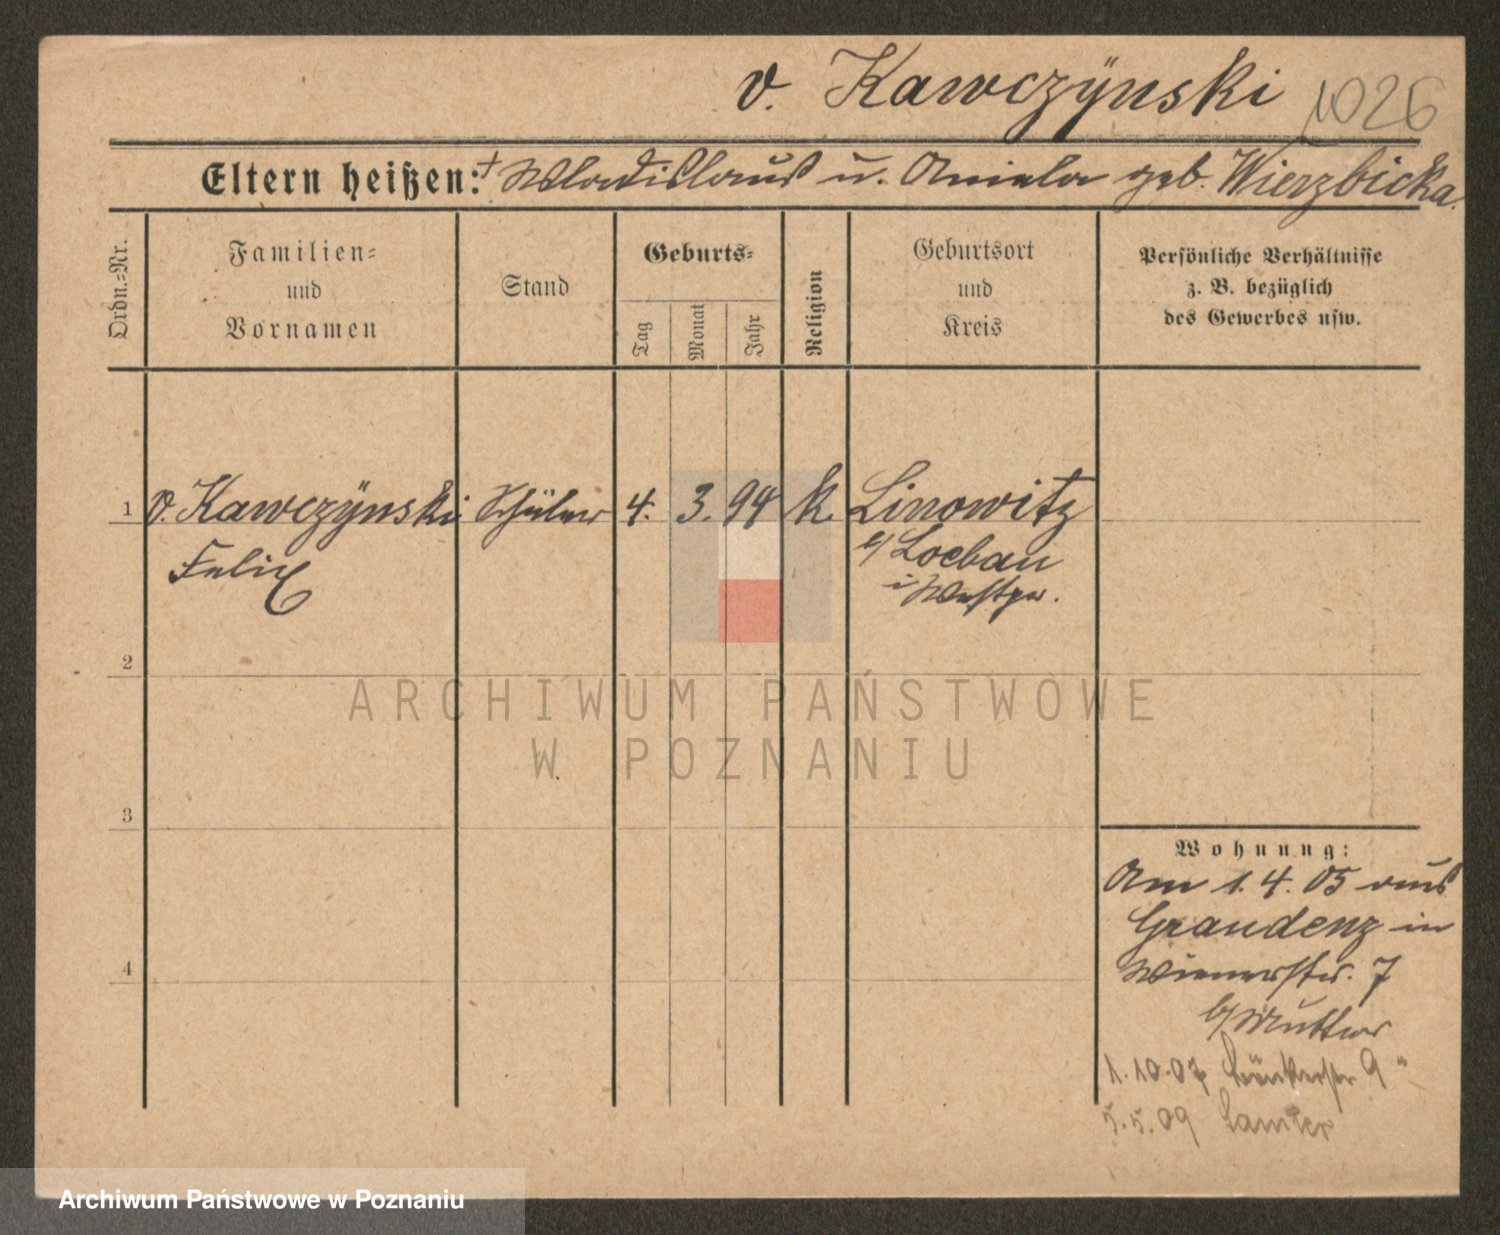 v. Kawczÿnski 1026
Eltern heißen: † Wladislaus u. Aniela geb. Wierzbicka.
Ordn.-Nr.
Familien-
und
Vornamen
Stand
Geburts-
Tag
Monat
Jahr
Religion
Geburtsort
und
Kreis
Persönliche Verhältnisse
z. B. bezüglich
des Gewerbes usw.
1 v. Kawczÿnski Schüler 4. 3. 94 k. Linowitz
Felix
b/ Loebau
i Westpr.
2
3
4
Wohnung:
Am 1. 4. 05 aus
Graudenz in
Wienerstr. 7
b/ Mutter
1.10.07 9
5.5.09 Samter
ARCHIWUM PAŃSTWOWE
W POZNANIU
Archiwum Państwowe w Poznaniu